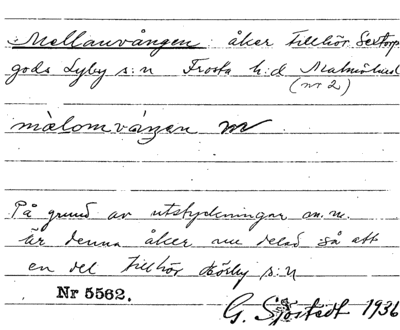 Mellanvången: åker tillhör Sextorp
gods Lyby s:n Frosta h:d Malmöhus
(nr 2)
màlomváŋen m
På grund av utstyckningar m.m.
är denna åker nu delad så att
en del tillhör Hörby s:n
Nr 5562.
G. Sjöstedt 1936